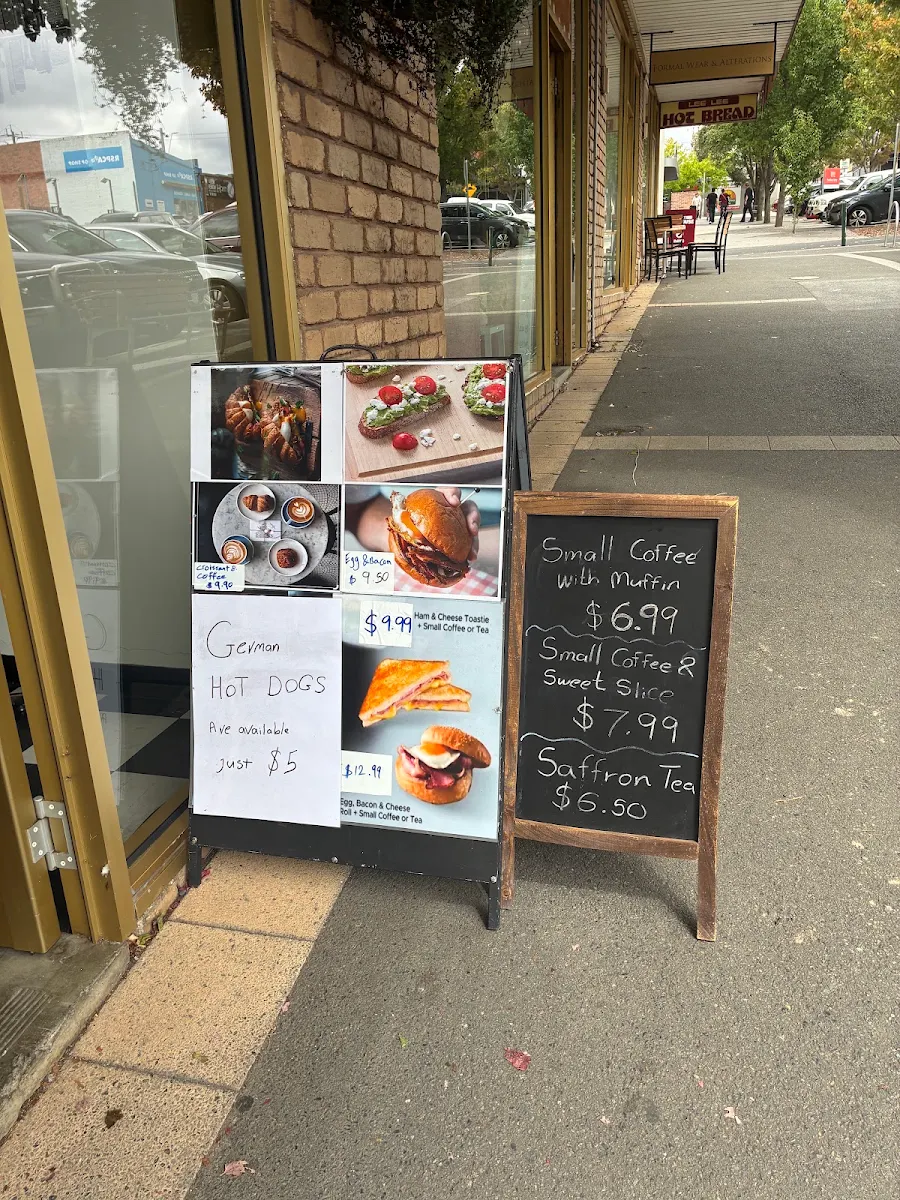 FORMAL WEAR & ALTERATIONS
LEE LEE
HOT BREAD
RSPCA
OP SHOP
Croissant &
Coffee
$9.90
Egg & Bacon
$ 9.50
German
HOT DOGS
Are available
just $5
$9.99
Ham & Cheese Toastie
+ Small Coffee or Tea
$12.99
Egg, Bacon & Cheese
Roll + Small Coffee or Tea
Small Coffee
with Muffin
$6.99
Small Coffee &
Sweet Slice
$7.99
Saffron Tea
$6.50